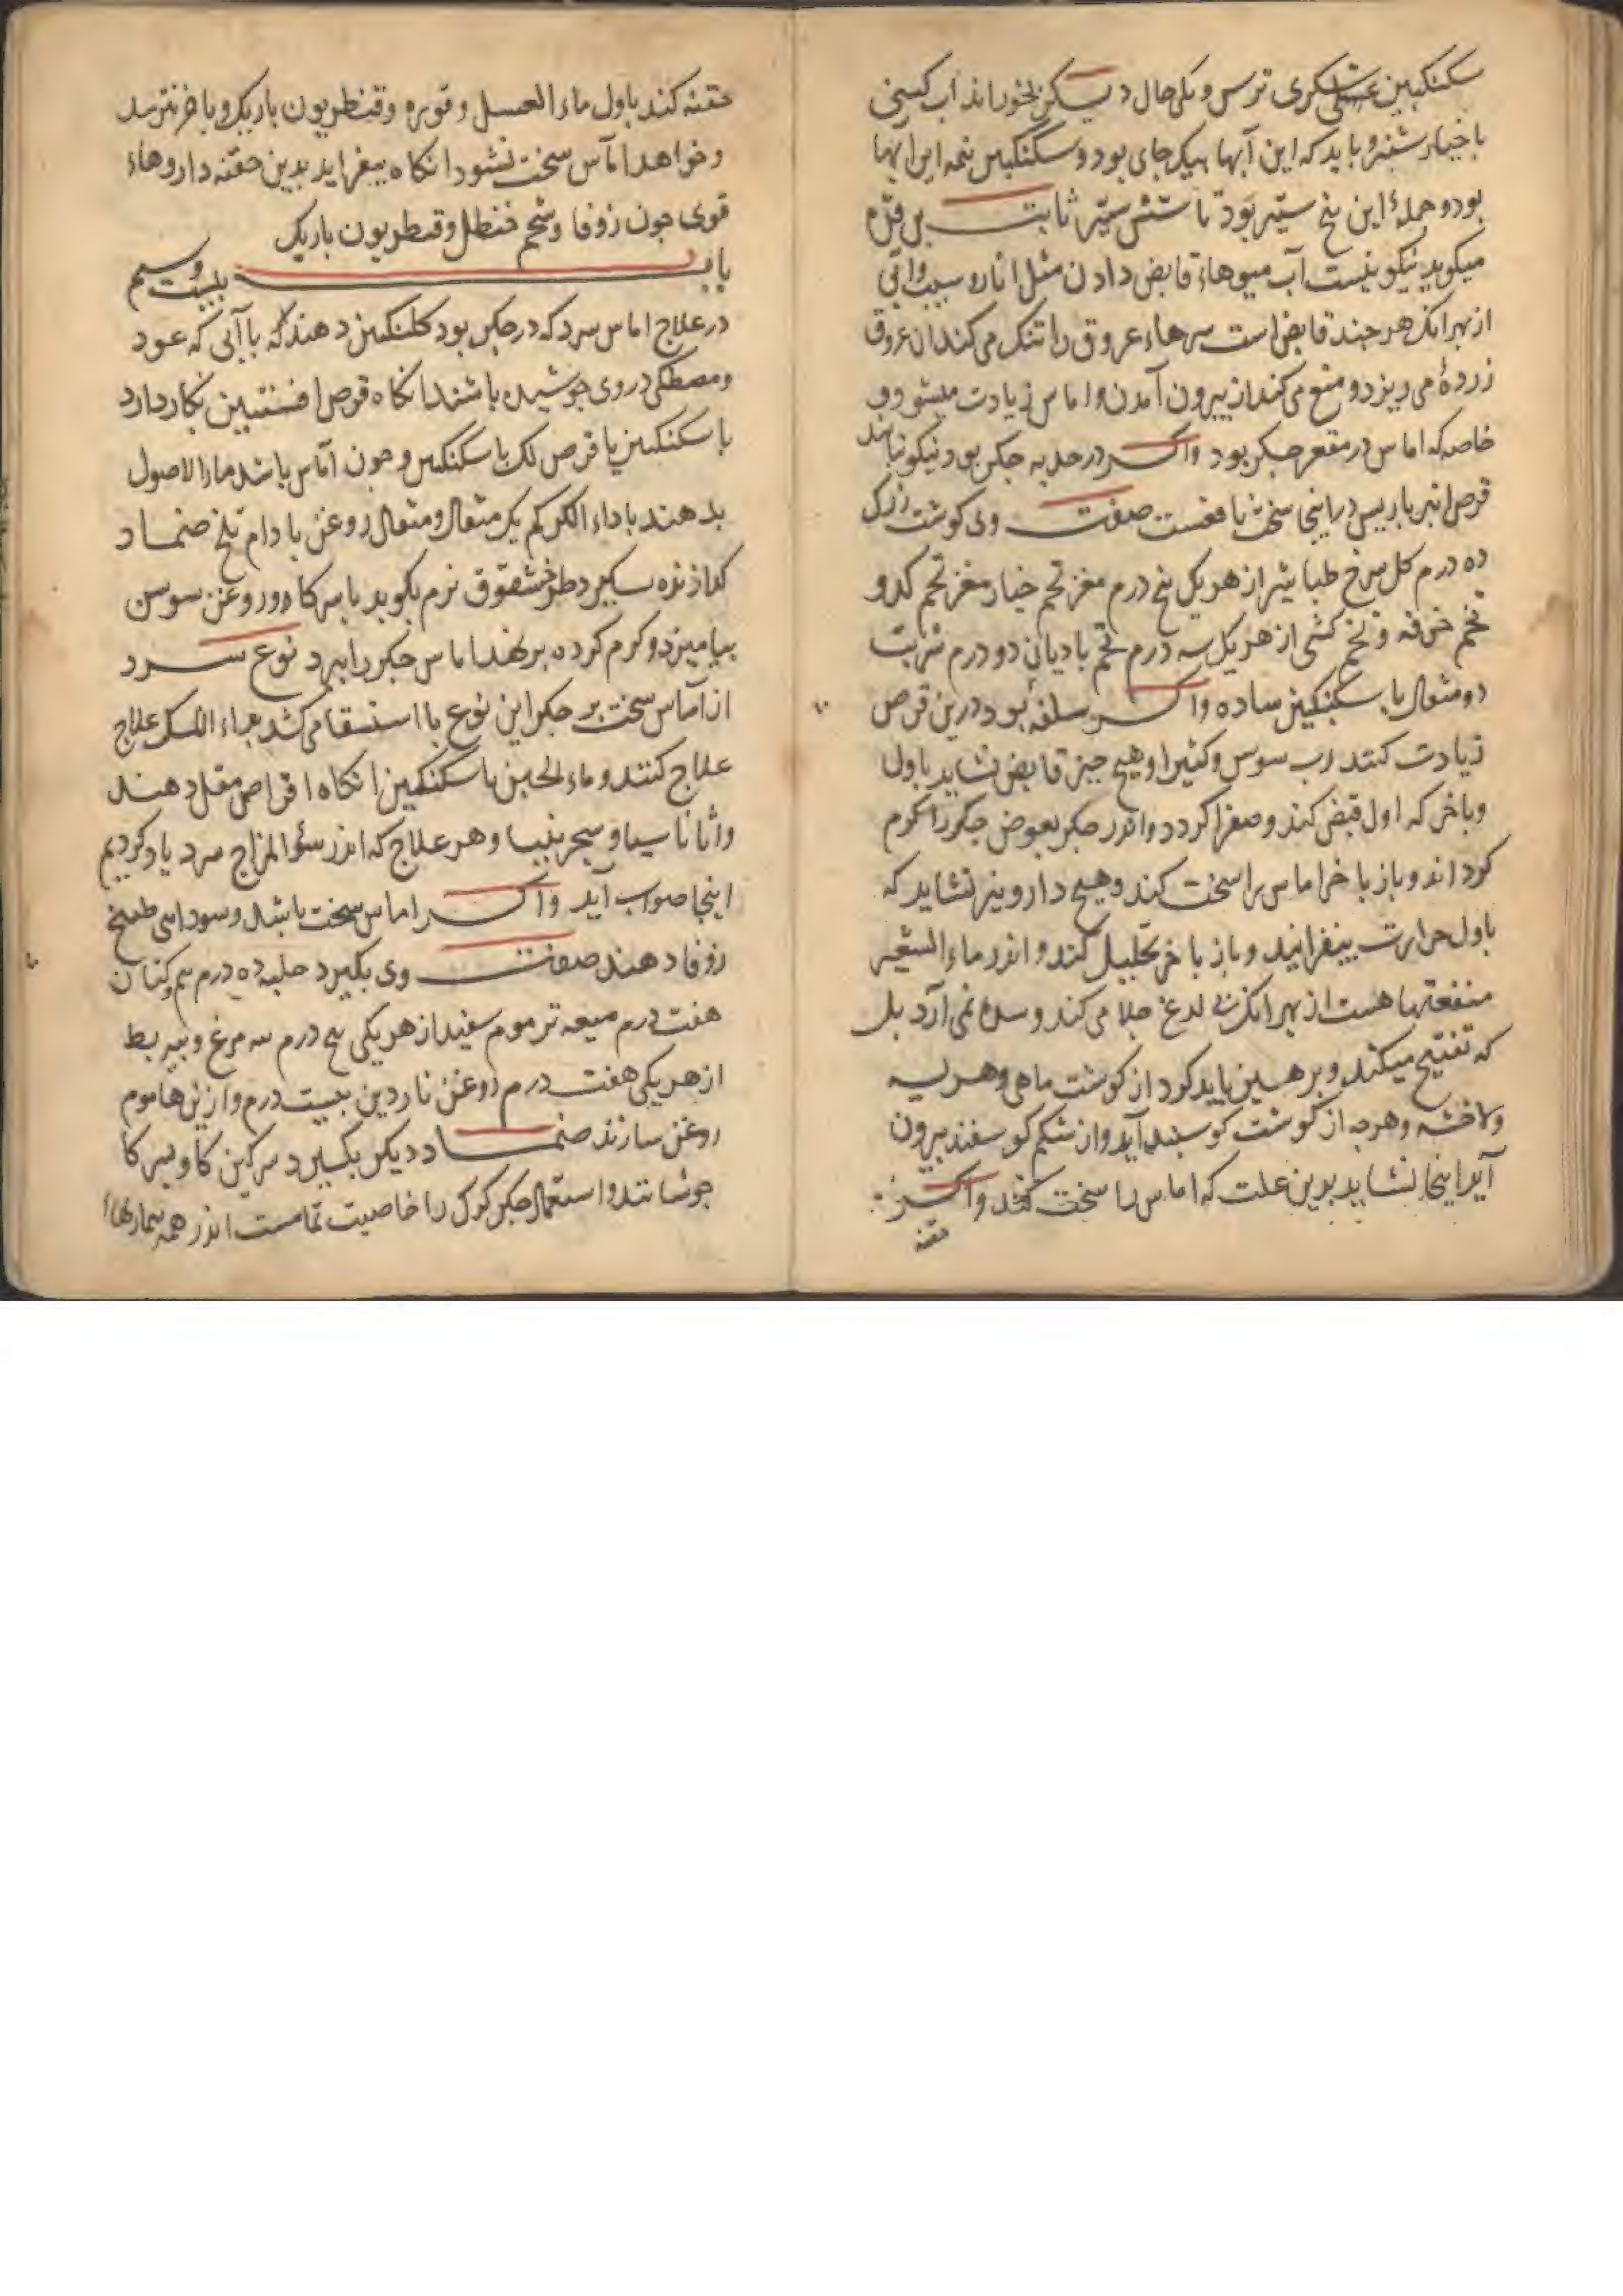 سکنکبین عسلی شکری ترس و یکی حال دیگر بخوراند آب کسنی
با خیار شنبر و باید که این آبها بیک جای بود و سکنکبین نیمه این آبها
بود و جملهٔ این پنج ستیر بود تا شش ستیر ثابت بن قره
میکوید نیکو نیست آب میوهاء قابض دادن مثل انار و سیب و آبی
از بهر انک هر چند قابض است سرهاء عروق را تنک می کند ان عروق
زرده می ریزد و منع می کند از بیرون آمدن و اماس زیادت میشود و
خاصه که اماس در مقعر جکر بود واکر در حدبه جکر بود نیکو نباشد
قرص انبرباریس در اینجا سخت با منفعست صفت وی کوشت زرک
ده درم کل سرخ طباشیر از هر یکی پنج درم مغز تخم خیار مغز تخم کدو
تخم خرفه و تخم کشی از هر یک سه درم تخم بادیان دو درم شربت
دو مثقال با سکنکبین ساده واکر سلفه بود درین قرص
زیادت کنند رب سوس و کثیرا و هیچ چیز قابض نشاید باول
و باخر که اول قبض کند و صفرا کردد واندر جکر بعوض جکر را کرم
کرداند و باز باخر اماس را سخت کند و هیچ دارو نیز نشاید که
باول حرارت بیفزایند و باز باخر تحلیل کند و اندر ماء الشعیر
منفعتها هست از بهر انک بی لدغ جلا می کند و سده نمی آرد بل
که تفتیح میکند و برهیز باید کرد از کوشت ماهی و هریسه
ولافشه و هرچه از کوشت کوسبند آید و از شکم کوسفند بیرون
آید اینجا نشاید بدین علت که اماس را سخت کند واکر
حقنه
حقنه کند باول ماء العسل و قوره و قنطریون باریک و باخر نترسد
و خواهد اماس سخت نشود انکاه بیفزاید بدین حقنه داروهاء
قوی چون زوفا و شحم حنظل و قنطریون باریک
باب بیست و سیم
در علاج اماس سرد که در جکر بود کلنکبین دهند که با آبی که عود
و مصطکی در وی جوشیده باشند انکاه قرص افسنتین بکار دارد
با سکنکبین یا قرص لک با سکنکبین و چون اماس باشد ماء الاصول
بدهند با دواء الکرکم یک مثقال و مثقال روغن بادام تلخ ضماد
کدازنده بکیرد نرم بکوبد با سرکا و روغن سوسن
بیامیزد و کرم کرده برنهد اماس جکر را ببرد نوع سرد
از اماس سخت بر جکر این نوع با استسقا می کشد علاج
علاج کنند و ماء الجبن با سکنکبین انکاه اقراص مقل دهند
واثاناسیا و سجزینیا و هر علاج که اندر سؤ المزاج سرد یاد کردیم
اینجا صواب آید واکر اماس سخت باشد و سوداسی طبیخ
زوفا دهند صفت وی بکیرد حلبه ده درم کتان
هفت درم میعه تر موم سفید از هر یکی پنج درم به مرغ و پیه بط
از هر یکی هفت درم روغن ناردین بیست درم و ازین ها موم
روغن سازند ضماد دیکر بکیرد سرکین کاو بسرکا
جوشانند و استعمال جکر کرک را خاصیت تمامست اندر همه بیماریهاء